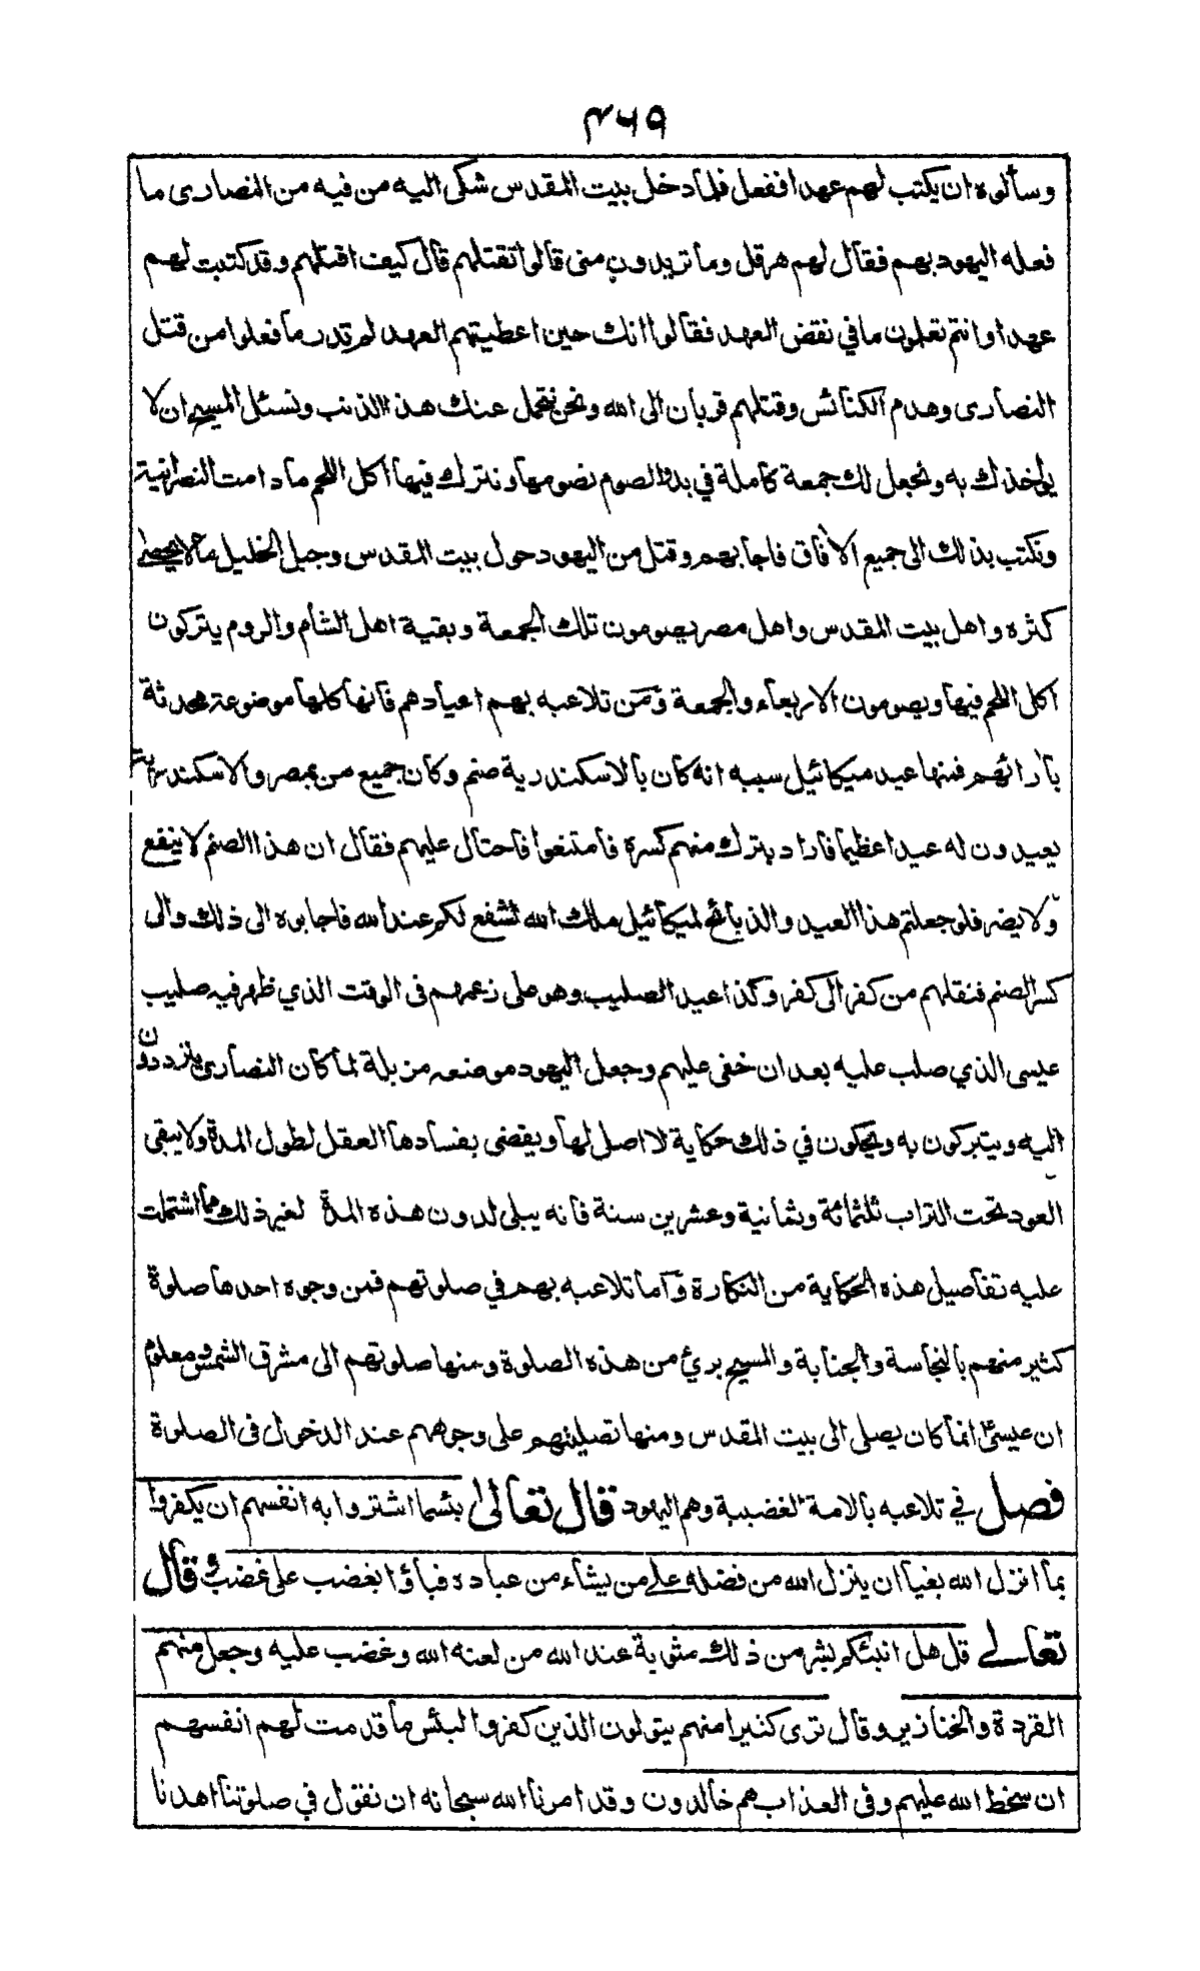 ٤٦٩
وسألوه ان يكتب لهم عهدا ففعل فلما دخل بيت المقدس شكى اليه من فيه من النصارى ما
فعله اليهود بهم فقال لهم هرقل وما تريدون منى قالوا تقتلهم قال كيف اقتلهم وقد كتبت لهم
عهدا وانتم تعلمون ما في نقض العهد فقالوا انك حين اعطيتهم العهد لم تدر ما فعلوا من قتل
النصارى وهدم الكنائس وقتلهم قربان الى الله ونحن نتحمل عنك هذا الذنب ونسئل المسيح ان لا
يؤاخذك به ونجعل لك جمعة كاملة في بدء الصوم نصومها ونترك فيها اكل اللحم ما دامت النصرانية
ونكتب بذلك الى جميع الافاق فاجابهم وقتل من اليهود حول بيت المقدس وجبل الخليل ما لا يحصى
كثره واهل بيت المقدس واهل مصر يصومون تلك الجمعة وبقية اهل الشأم والروم يتركون
اكل اللحم فيها ويصومون الاربعاء والجمعة ومن تلاعبه بهم اعيادهم فانها كلها موضوعة محدثة
بارائهم فمنها عيد ميكائيل سببه انه كان بالاسكندرية صنم وكان جميع من بمصر والاسكندرية
يعيدون له عيدا عظيما فاراد بترك منهم كسره فامتنعوا فاحتال عليهم فقال ان هذا الصنم لا ينفع
ولا يضر فلو جعلتم هذا العيد والذبائح لميكائيل ملك الله لشفع لكم عند الله فاجابوه الى ذلك والى
كسر الصنم فنقلهم من كفر الى كفر وكذا عيد الصليب وهو على زعمهم فى الوقت الذي ظهر فيه صليب
عيسى الذي صلب عليه بعد ان خفى عليهم وجعل اليهود موضعه مزبلة لما كان النصارى يترددون
اليه ويتبركون به ويحكون في ذلك حكاية لا اصل لها ويقضى بفسادها العقل لطول المدة ولا يبقى
العود تحت التراب ثلثمائة وثمانية وعشرين سنة فانه يبلى لدون هذه المدة لغير ذلك مما اشتملت
عليه تفاصيل هذه الحكاية من النكارة وأما تلاعبه بهم في صلوتهم فمن وجوه احدها صلوة
كثير منهم بالنجاسة والجنابة والمسيح بريئ من هذه الصلوة ومنها صلوتهم الى مشرق الشمس ومعلوم
ان عيسى انما كان يصلى الى بيت المقدس ومنها تصليبهم على وجوههم عند الدخول فى الصلوة
فصل في تلاعبه بالامة الغضبية وهم اليهود قال تعالى بئسما اشتروا به انفسهم ان يكفروا
بما انزل الله بغيا ان ينزل الله من فضله على من يشاء من عباده فباؤا بغضب على غضب وقال
تعالى قل هل انبئكم بشر من ذلك مثوبة عند الله من لعنه الله وغضب عليه وجعل منهم
القردة والخنازير وقال ترى كثيرا منهم يتولون الذين كفروا لبئس ما قدمت لهم انفسهم
ان سخط الله عليهم وفى العذاب هم خالدون وقد امرنا الله سبحانه ان نقول في صلوتنا اهدنا